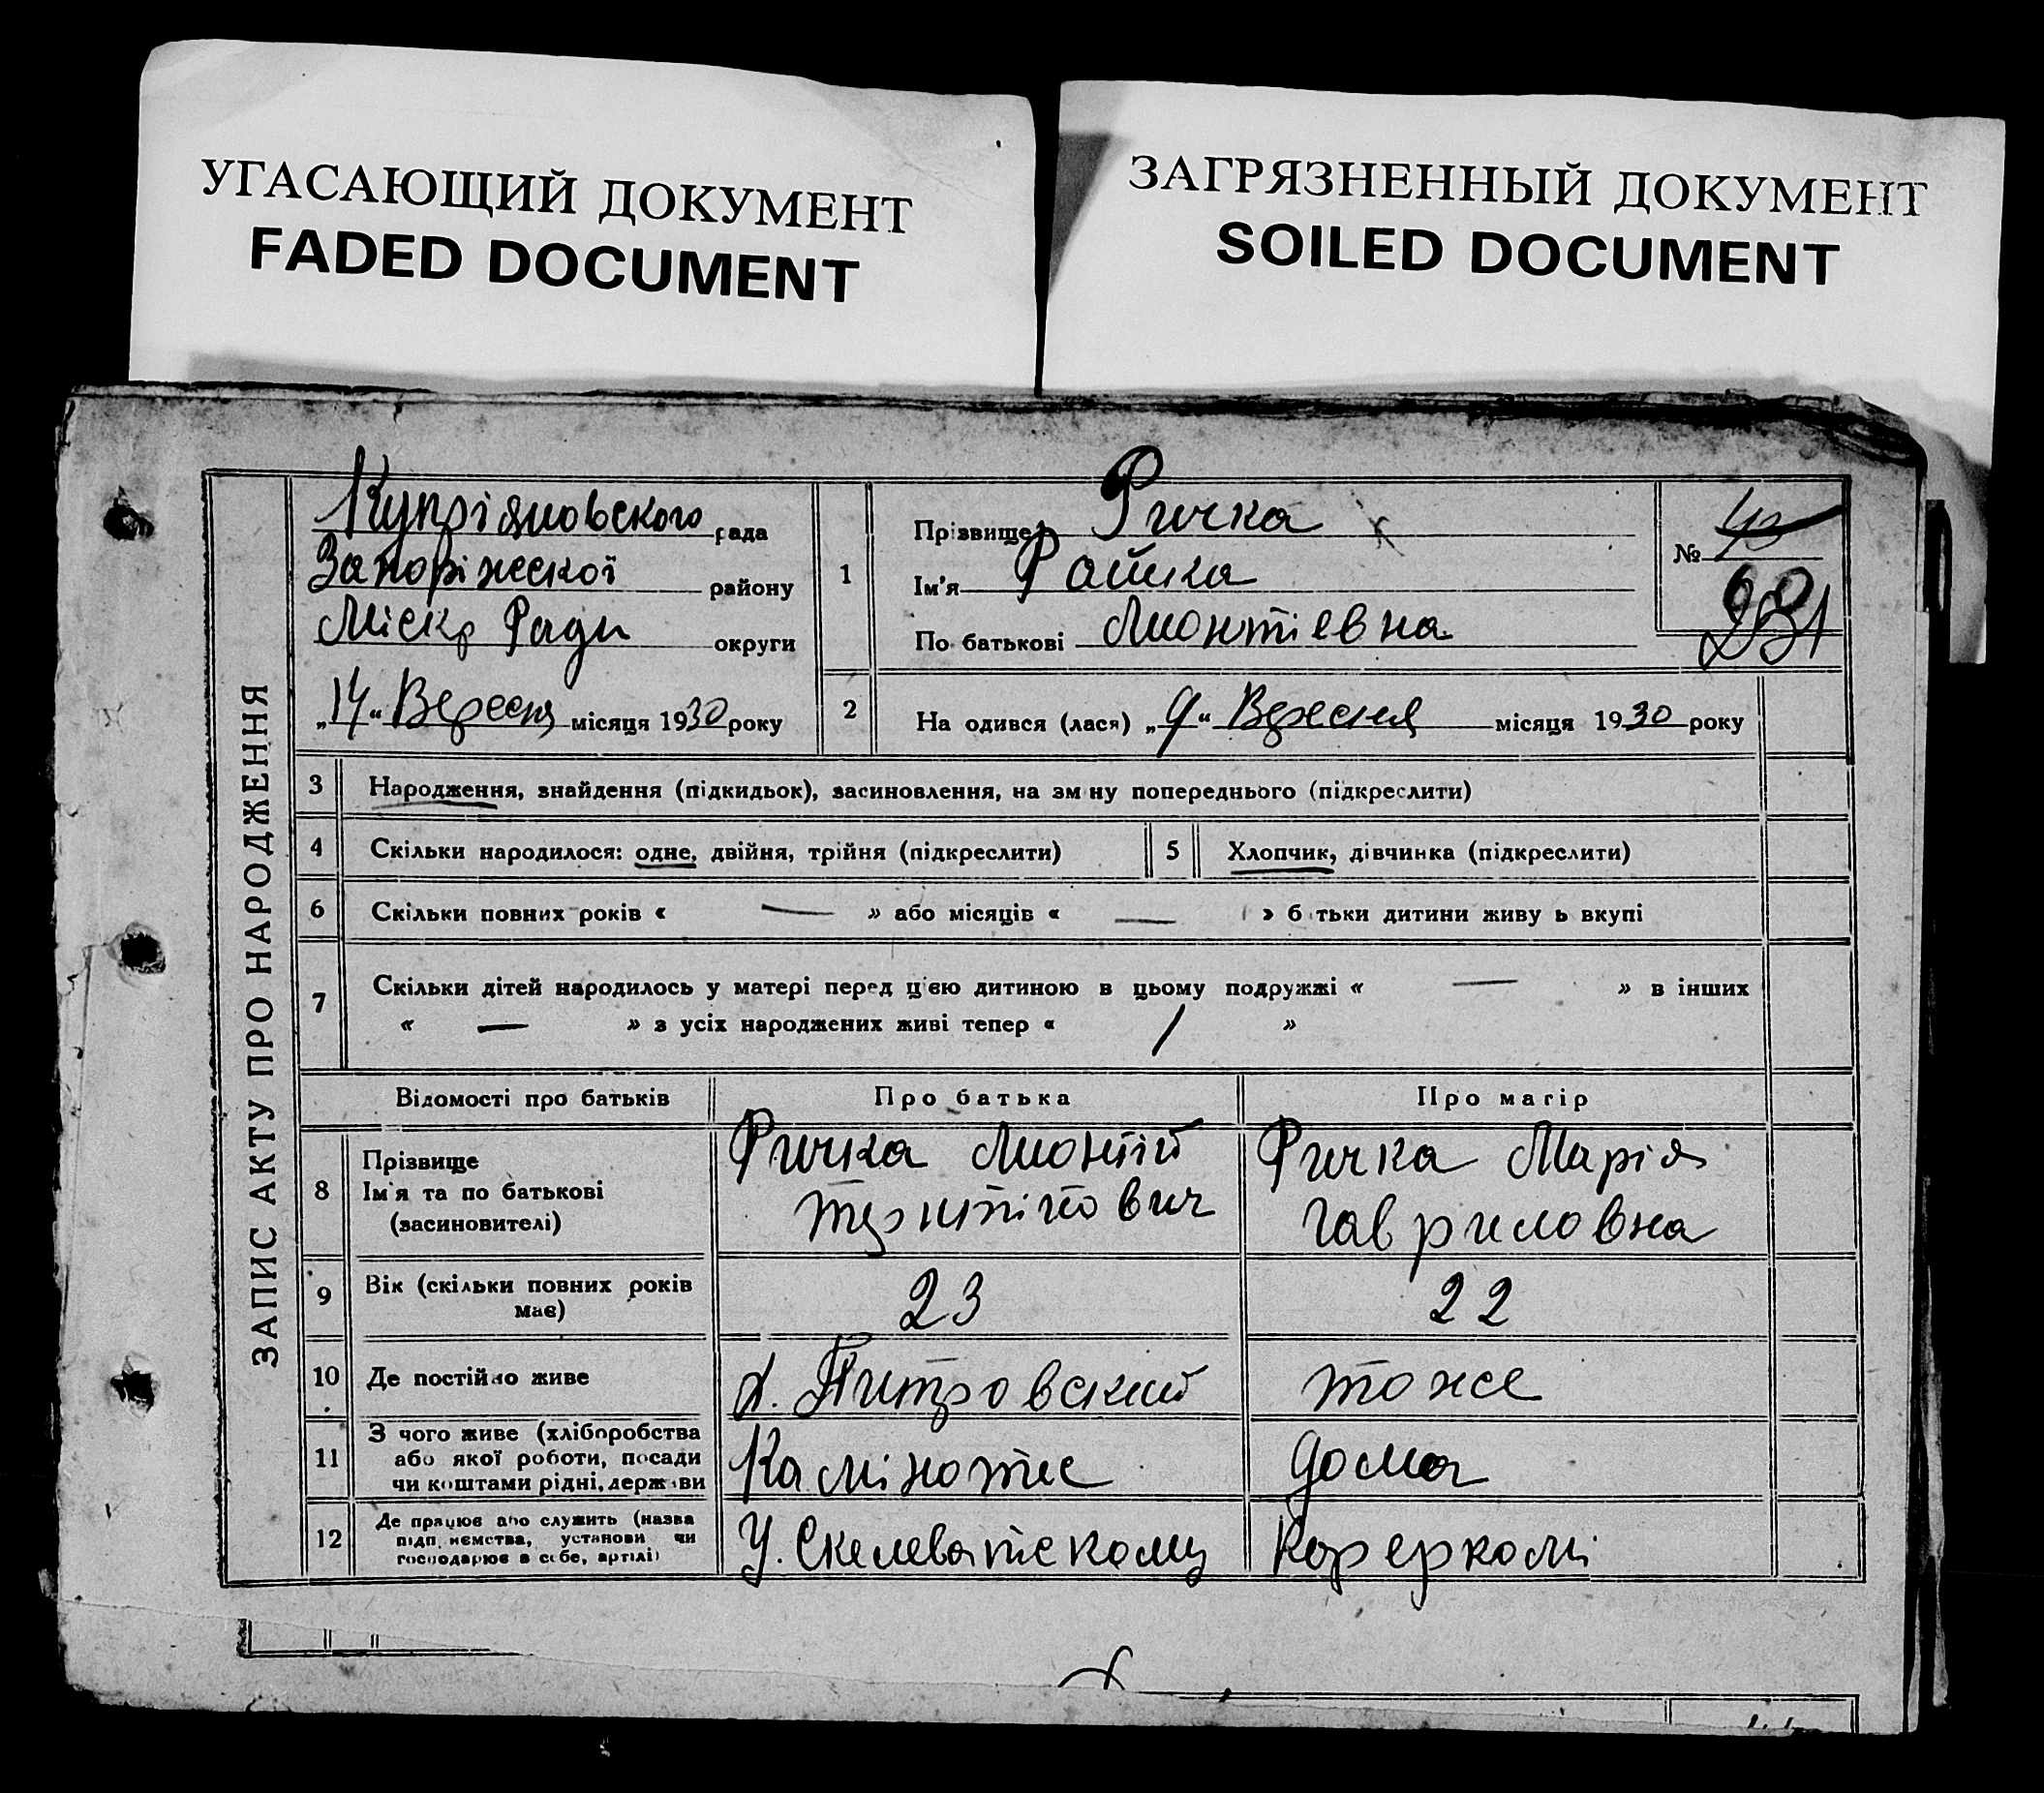 УГАСАЮЩИЙ ДОКУМЕНТ
FADED DOCUMENT
ЗАГРЯЗНЕННЫЙ ДОКУМЕНТ
SOILED DOCUMENT
ЗАПИС АКТУ ПРО НАРОДЖЕННЯ
Купріяновского рада
Запоріжескої району
Міск, Ради округи
„14“ Вересня місяця 1930 року
1
Прізвище Ричка
Ім'я Райка
По батькові Лионтіевна
№ 43
60
231
2 На одився (лася) „9“ Вересня місяця 1930 року
3 Народження, знайдення (підкидьок), засиновлення, на зм ну попереднього (підкреслити)
4 Скільки народилося: одне, двійня, трійня (підкреслити)
5 Хлопчик, дівчинка (підкреслити)
6 Скільки повних років « — » або місяців « — » б тьки дитини живу ь вкупі
7 Скільки дітей народилось у матері перед цією дитиною в цьому подружжі « — » в інших
« — » з усіх народжених живі тепер « / »
Відомості про батьків Про батька Про матір
8 Прізвище
Ім'я та по батькові
(засиновителі)
Ричка Лионтій
Ричка Марія
Гавриловна
9 Вік (скільки повних років
має)
23
22
10 Де постійно живе
х. Питровский
тоже
11 З чого живе (хліборобства
або якої роботи, посади
чи коштами рідні, держави
Каміноте
дома
12 Де працює або служить (назва
підп иємства, установи чи
господарює в себе, артілі)
У. Скелеватском